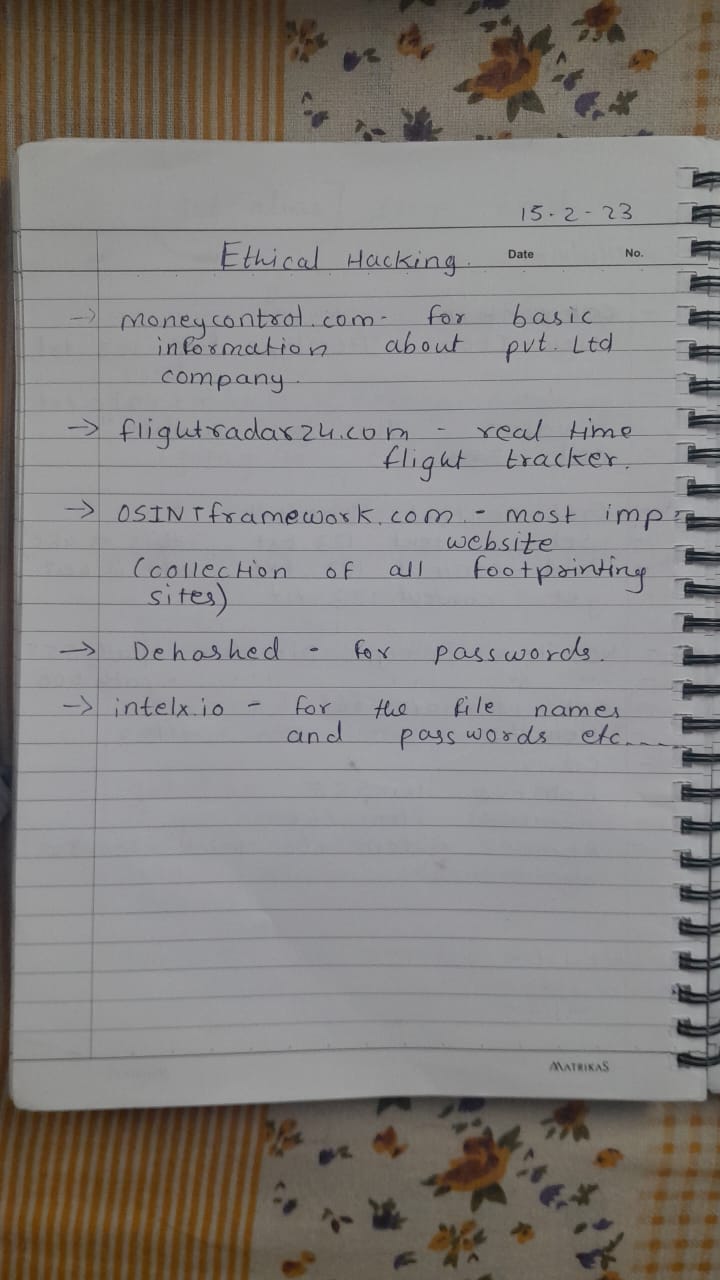 15-2-23
Ethical Hacking. Date No.
→ moneycontrol.com - for basic
information about pvt. Ltd
company.
→ flightradar24.com - real time
flight tracker.
→ OSINTframework.com. - most imp
website
(collection of all footprinting
sites)
→ Dehashed - for passwords.
→ intelx.io - for the file names
and passwords etc....
MATRIKAS